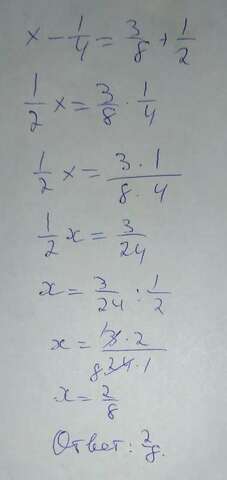 x - 1/4 = 3/8 + 1/2
1/2 x = 3/8 · 1/4
1/2 x = 3 · 1 / 8 · 4
1/2 x = 3/24
x = 3/24 : 1/2
x = 1 3 · 2 / 8 24 · 1
x = 2/8
Ответ: 2/8.